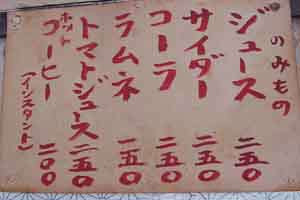 のみもの
ジュース 二五〇
サイダー 二五〇
コーラ 二五〇
ラムネ 一五〇
トマトジュース 二五〇
ホットコーヒー(インスタント) 二〇〇